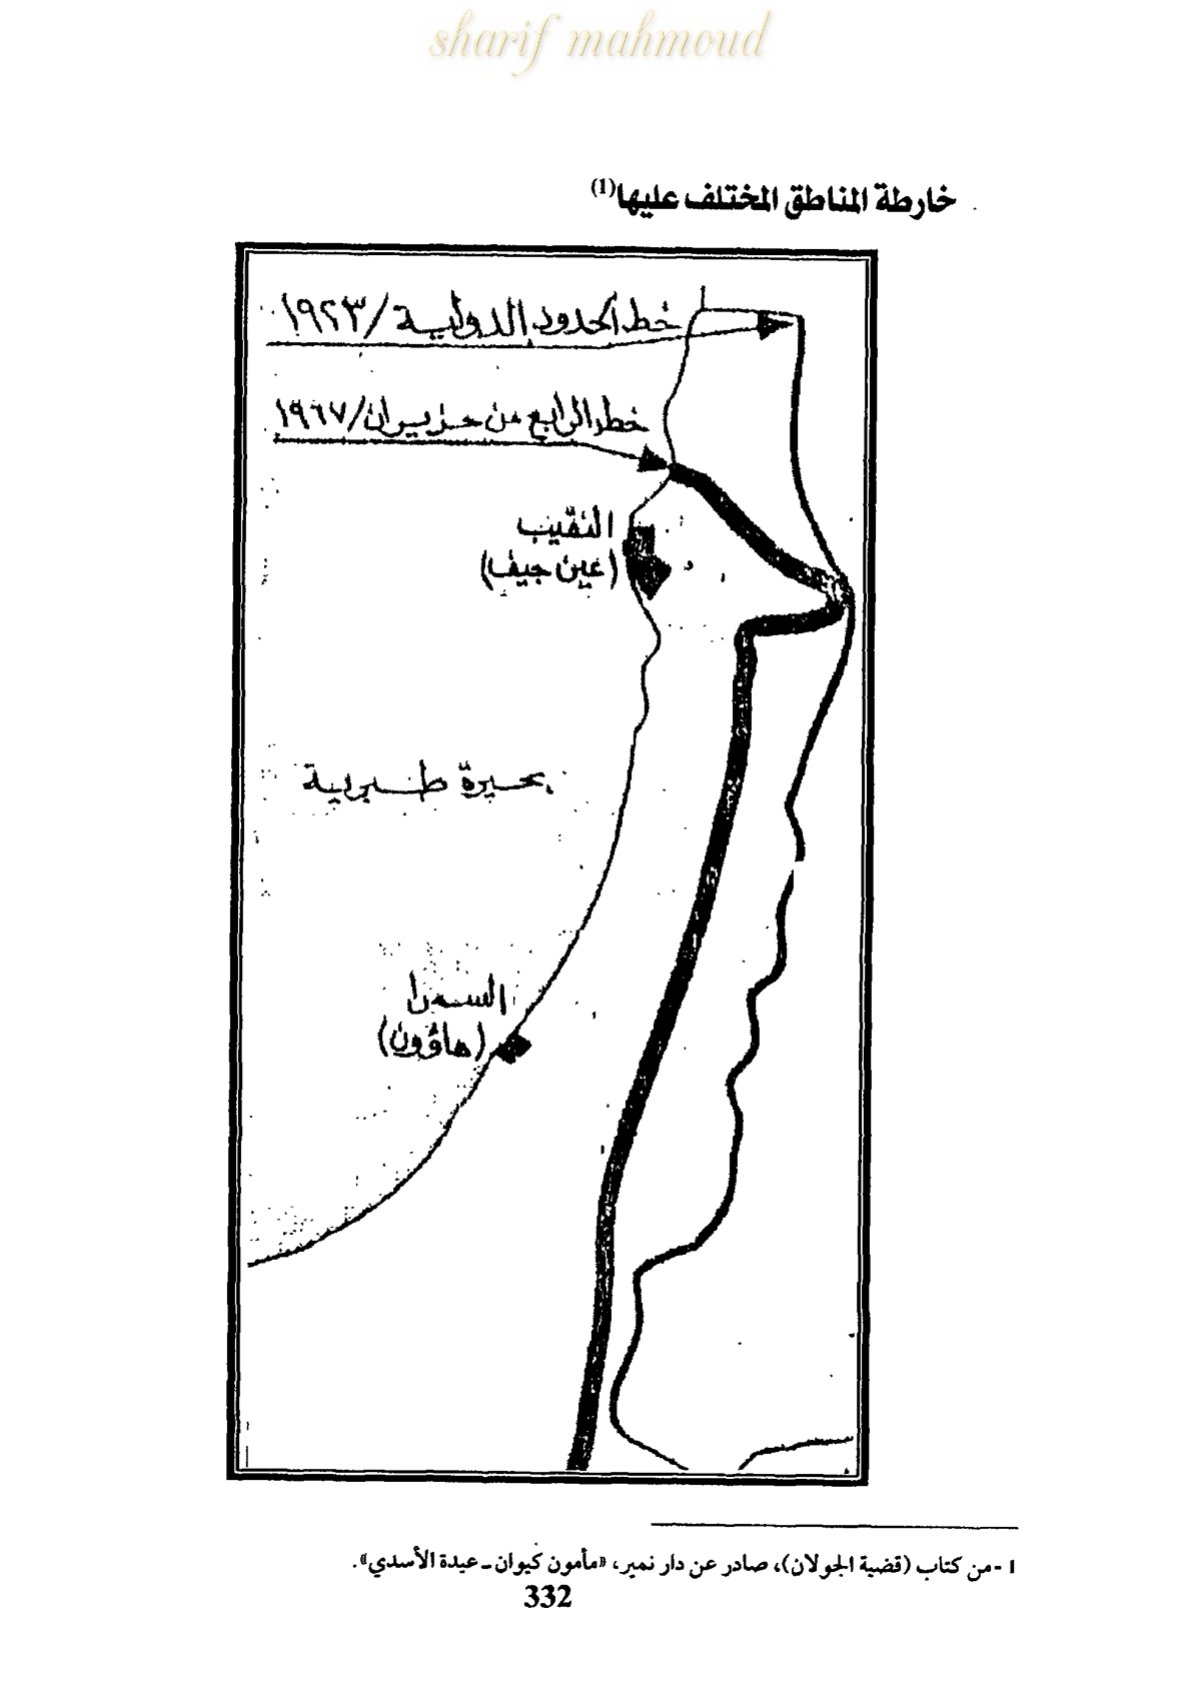 sharif mahmoud
خارطة المناطق المختلف عليها(1)
خط الحدود الدولية /١٩٢٣
خط الرابع من حزيران/١٩٦٧
النقيب
(عين جيف)
بحيرة طبرية
السمرا
(هاؤون)
1 - من كتاب (قضية الجولان)، صادر عن دار نمير، «مأمون كيوان ـ عبدة الأسدي».
332